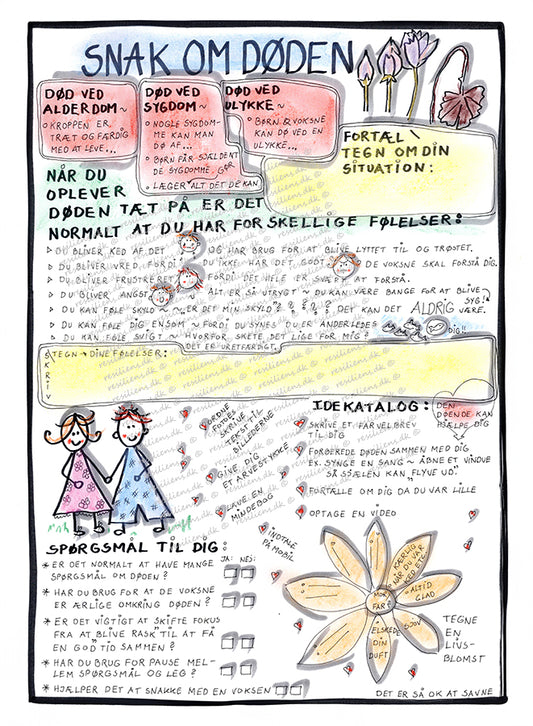 SNAK OM DØDEN
DØD VED
ALDERDOM~
KROPPEN ER
TRÆT OG FÆRDIG
MED AT LEVE...
DØD VED
SYGDOM~
NOGLE SYGDOM-
ME KAN MAN
DØ AF...
BØRN FÅR SJÆLDENT
DE SYGDOMME
LÆGER GØR ALT DET DE KAN
DØD VED
ULYKKE~
BØRN & VOKSNE
KAN DØ VED EN
ULYKKE...
FORTÆL
TEGN OM DIN
SITUATION:
NÅR DU
OPLEVER
DØDEN TÆT PÅ ER DET
NORMALT AT DU HAR FORSKELLIGE FØLELSER:
DU BLIVER KED AF DET OG HAR BRUG FOR AT BLIVE LYTTET TIL OG TRØSTET.
DU BLIVER VRED FORDI DU IKKE HAR DET GODT DE VOKSNE SKAL FORSTÅ DIG.
DU BLIVER FRUSTRERET FORDI DET HELE ER SVÆRT AT FORSTÅ.
DU BLIVER ANGST ALT ER SÅ UTRYGT ~ DU KAN VÆRE BANGE FOR AT BLIVE SYG!
DU KAN FØLE SKYLD ~ ~ ER DET MIN SKYLD? ? ? ? DET KAN DET ALDRIG VÆRE.
DU KAN FØLE DIG ENSOM ~ FORDI DU SYNES DU ER ANDERLEDES
DU KAN FØLE SVIGT ~ HVORFOR SKETE DET LIGE FOR MIG? DIG!!
DET ER URETFÆRDIGT.
SKRIV
TEGN DINE FØLELSER:
IDEKATALOG:
DEN
DØENDE KAN
HJÆLPE DIG
ORDNE
FOTOS
SKRIVE
TEKST TIL
BILLEDERNE
GIVE DIG
ET ARVESTYKKE
LAVE EN
MINDEBOG
INDTALE
PÅ MOBIL
SKRIVE ET FARVELBREV
TIL DIG
FORBEREDE DØDEN SAMMEN MED DIG
EX. SYNGE EN SANG ~ ÅBNE ET VINDUE
SÅ SJÆLEN KAN "FLYVE UD"
FORTÆLLE OM DIG DA DU VAR LILLE
OPTAGE EN VIDEO
SPØRGSMÅL TIL DIG:
JA: NEJ:
* ER DET NORMALT AT HAVE MANGE
SPØRGSMÅL OM DØDEN?
* HAR DU BRUG FOR AT DE VOKSNE
ER ÆRLIGE OMKRING DØDEN?
* ER DET VIGTIGT AT SKIFTE FOKUS
FRA AT "BLIVE RASK" TIL AT FÅ
EN GOD TID SAMMEN?
* HAR DU BRUG FOR PAUSE MEL-
LEM SPØRGSMÅL OG LEG?
* HJÆLPER DET AT SNAKKE MED EN VOKSEN
KÆRLIG
NÅR DU VAR
KED ETC.
ALTID
GLAD
MOR
FAR
SJOV
ELSKEDE
DIN
DUFT
TEGNE
EN
LIVS-
BLOMST
DET ER SÅ OK AT SAVNE
resiliens.dk ©